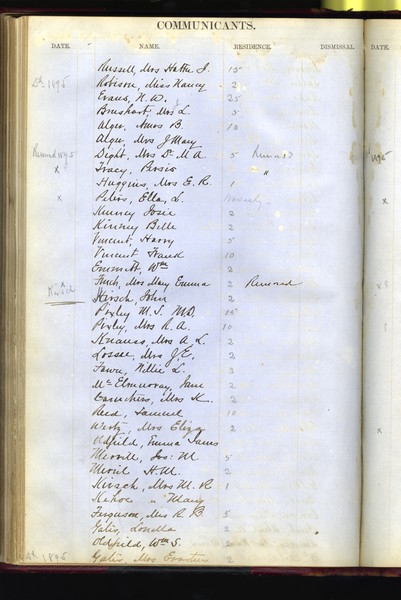 COMMUNICANTS.
DATE. NAME. RESIDENCE. DISMISSAL. DATE.
Russell, Mrs Hattie J. 15
1895 Robison, Miss Nancy 2
Evans, N. W. 25
Brushart, Mrs L. 5
Alger, Amos B. 10
Alger, Mrs J May
Removed 1895 Dight, Mrs Dr M A 5
x Tracy, Persis "
Huggins, Mrs G. R. 1
x Peters, Ella, L.
Kinney Josie 2
Kinney Belle 2
Vincent, Harry 5
Vincent Frank 10
Emmitt, Wm 2
x Finch, Mrs May Emma 2 Removed
Kirsch Kirsch, John 2
Pixley M. S. M.D. 15
Pixley, Mrs R. A. 10
Knauss, Mrs A. L. 2
Losee, Mrs J. E. 2
Fawn, Willie L. 3
McElmurray, Jane 2
Caruthers, Mrs K. 2
Reed, Samuel 10
Wertz, Mrs Eliza 2
Oldfield, Emma Janes
Merrill, Jos: M 5
Merril H. M. 2
Kirsch, Mrs M. R 1
Kehoe " Mary
Ferguson, Mrs R. B 5
Gates, Louella 2
Oldfield, Wm S. 2
1895 Gates, Mrs 2